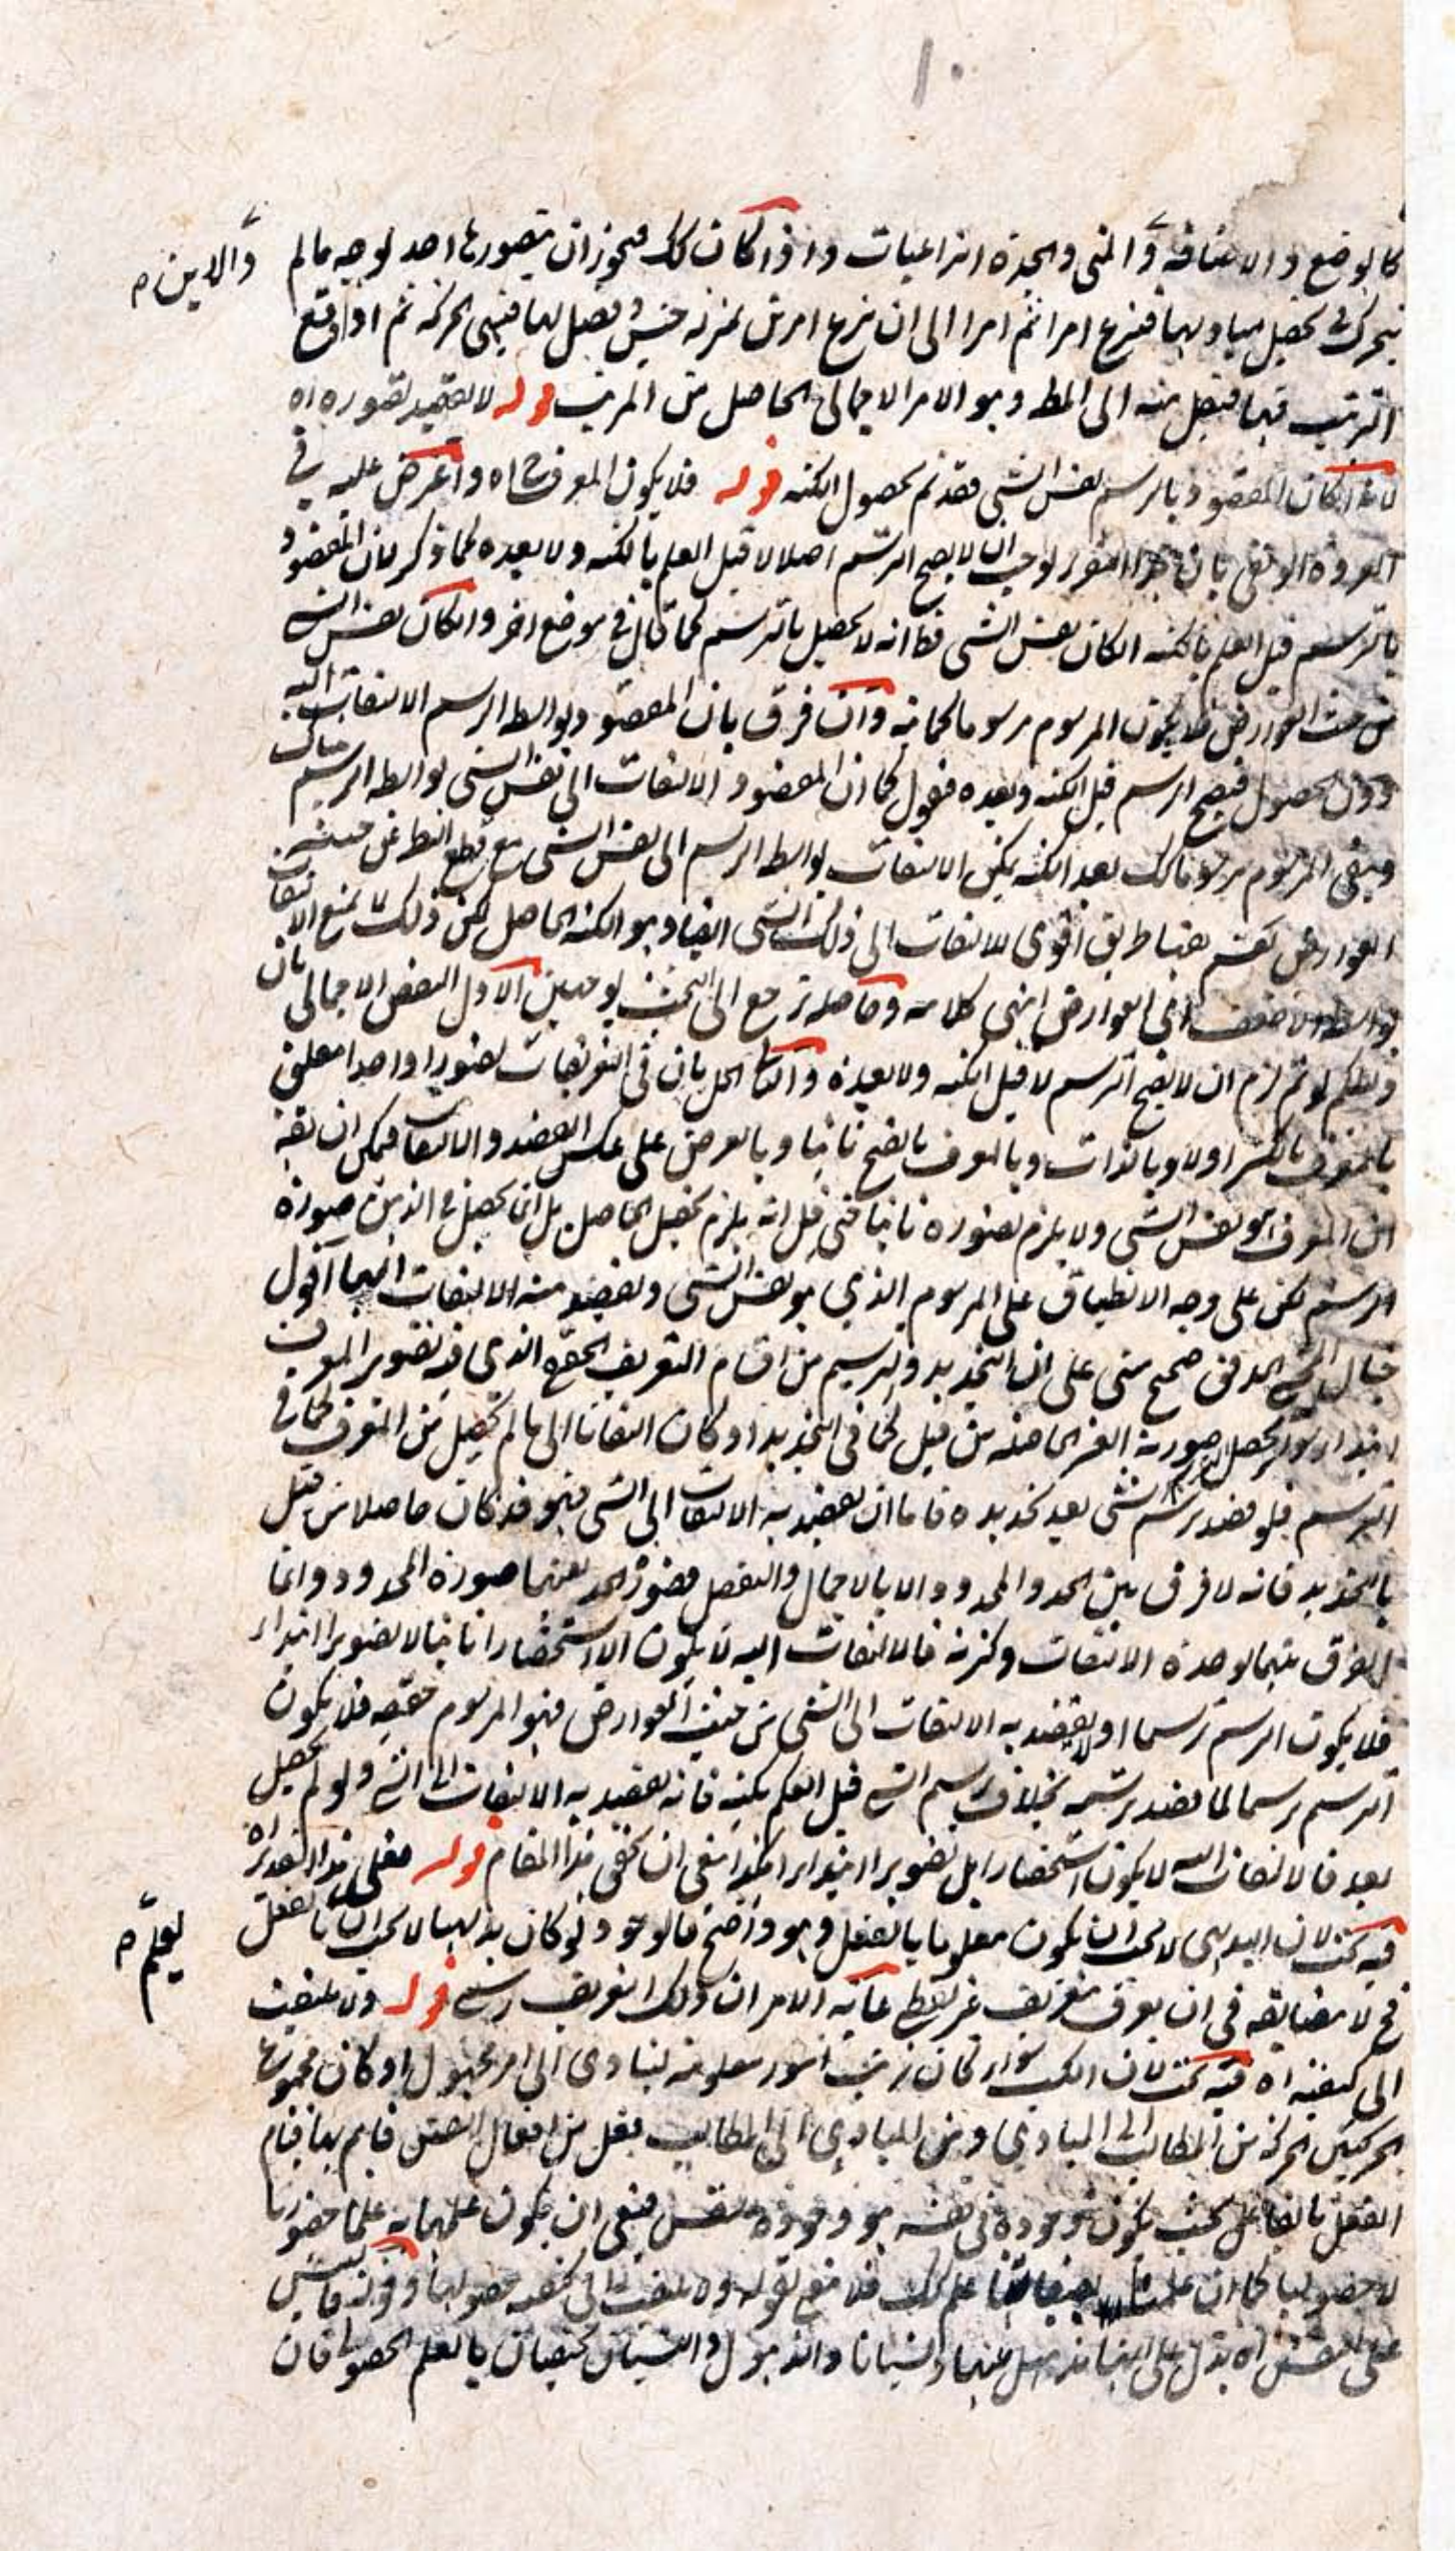 ١٠
كالوضع والاضافة والمتى والجدة انتزاعيات واذا كان كك فيجوز ان يتصورها احد لوجه مالم
والاين م
يتحرك في تحصيل مباديها فينزع امرا ثم امرا الى ان ينزع امرين بمنزلة جنس وفصل لها فينتهى الحركة ثم اذا وقع
الترتيب فيها فينتقل منه الى المط وهو الامر الاجمالى الحاصل من المرتب قوله لا يقصد تصوره اه
لانه ان كان المقصود بالرسم نفس الشئ فقد تم بحصول الكنه قوله فلا يكون المعرف ح اه واعترض عليه في
العروة الوثقى بان هذا التقرير يوجب ان لا يصح الترسيم اصلا لا قبل العلم بالكنه ولا بعده كما ذكر لان المقصود
بالترسيم قبل العلم بالكنه ان كان نفس الشئ فظ انه لا يحصل بالترسيم كما قال في موضع اخر وان كان نفس الشئ
من حيث العوارض فلا يكون المرسوم مرسوما كما مر وان فرق بان المقصود بواسطة الرسم الالتفات اليه
دون الحصول فيصح الرسم قبل الكنه وبعده فنقول كما ان المقصود الالتفات الى نفس الشئ بواسطة الرسم هناك
ويبقى المرسوم مرسوما كك بعد الكنه يمكن الالتفات بواسطة الرسم الى نفس الشئ مع قطع النظر عن حيثية
العوارض نعم ههنا طريق اقوى للالتفات الى ذلك الشئ ايضا وهو الكنه الحاصل لكن ذلك لا يمنع الالتفات
بواسطة الاضعف اى العوارض انتهى كلامه وحاصله ترجع الى البحث بوجهين الاول النقض الاجمالى بان
دليلكم لو تم لزم ان لا يصح الرسم لا قبل الكنه ولا بعده والثانى الحل بان في التعريفات تصويرا واحدا متعلق
بالمعرف بالكسر اولا وبالذات وبالمعرف بالفتح ثانيا وبالعرض على عكس القصد والالتفات فيمكن ان يقع
ان المعرف هو نفس الشئ ولا يلزم تصوره ثانيا حتى قيل انه يلزم تحصيل الحاصل بل انما يحصل في الذهن صورة
الرسم لكن على وجه الانطباق على المرسوم الذي هو نفس الشئ ويقصد منه الالتفات اليها اقول
ما قال الشيخ المدقق صحيح مبنى على ان التحديد والترسيم من اقسام التعريف الحقيقي الذى فيه تصوير المعرف
ابتداء سواء يحصل صورته الغير الحاصلة من قبل كما في التحديد او كان التفاتا الى ما لم يحصل من المعرف كما في
الترسيم فلو قصد ترسيم شئ بعد تحديده فاما ان يقصد به الالتفات الى الشئ فهو قد كان حاصلا من قبل
بالتحديد فانه لا فرق بين الحد والمحدود الا بالاجمال والتفصيل فصورة الحد بعينها صورة المحدود وانما
الفرق بينهما بوحدة الالتفات وكثرته فالالتفات اليه لا يكون الا استحضارا ثانيا لا تصويرا ابتداء
فلا يكون الرسم رسما او يقصد به الالتفات الى الشئ من حيث العوارض فهو المرسوم حقيقة فلا يكون
الرسم رسما لما قصد ترسيمه بخلاف ترسيم الشئ قبل العلم بكنهه فانه يقصد به الالتفات الى الشئ ولو لم يحصل
بعد فالالتفات اليه لا يكون استحضارا بل تصويرا ابتداء هكذا ينبغى ان يحقق هذا المقام قوله فعلى هذا التقدير اه
فيه بحث لان البديهى لا يجب ان يكون معلوما بالفعل وهو واضح فالوجود ولو كان بديهيا لا يجب ان بالفعل
يعلم م
فح لا مضايقة في ان يعرف بتعريف غير لفظى غاية الامر ان ذلك التعريف رسمي قوله ولا يلتفت
الى كيفيته اه فيه بحث لان الكسب سواء كان ترتيب امور معلومة ليتادى الى امر مجهول او كان مجموع
الحركتين الحركة من المطالب الى المبادي ومن المبادي الى المطالب فعل من افعال النفس قايم بها قيام
الفعل بالفاعل بحيث يكون وجوده في نفسه هو وجوده للنفس فينبغى ان يكون علمها به علما حضوريا
لا حصوليا كما ان علمها بصفاتها علم كك فلا منع لقوله ولا يلتفت الى كيفية حصولها وقوله فليس
على النفس اه يدل على انها تذهل عنها ونسيانا والذهول والنسيان مختصان بالعلم الحصولى فان